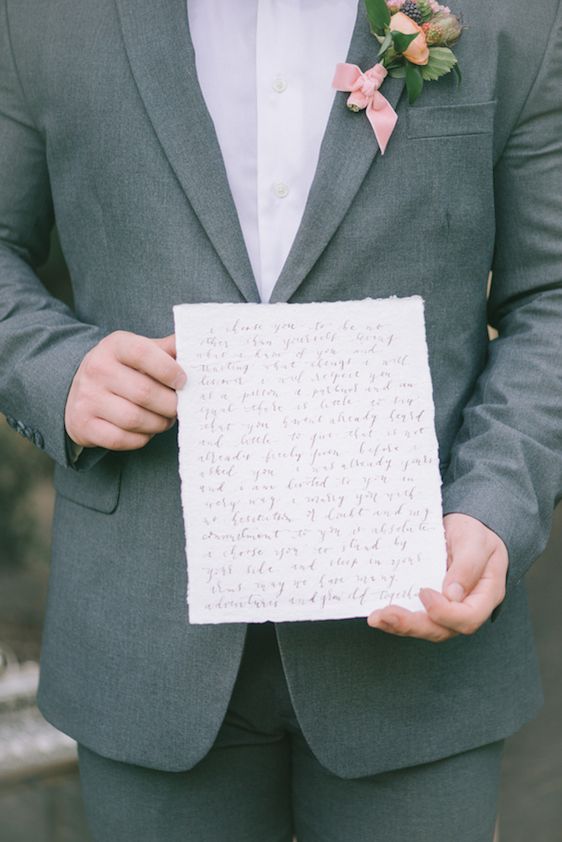 i choose you to be no
other than yourself loving
what i know of you and
trusting what things i will
discover i will respect you
as a person a partner and an
equal there is little to say
that you haven't already heard
and little to give that is not
already freely given before i
asked you i was already yours
and i am devoted to you in
every way i marry you with
no hesitation or doubt and my
commitment to you is absolute
i choose you to stand by
your side and sleep in your
arms may we have many
adventures and grow old together